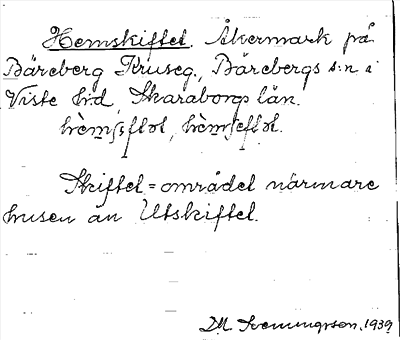 Hemskiftet. Åkermark på
Bäreberg Kruseg., Bärebergs s:n i
Viste hd, Skaraborgs län.
Skiftet = området närmare
husen än Utskiftet.
D.A. Svenningsson, 1939